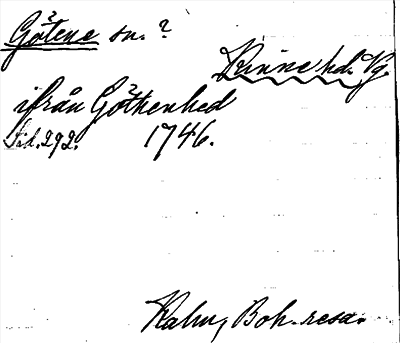 Götene sn. ?
Kinne hd. Vg.
ifrån Göthenhed
Sid. 292. 1746.
Kalm, Boh. resa.